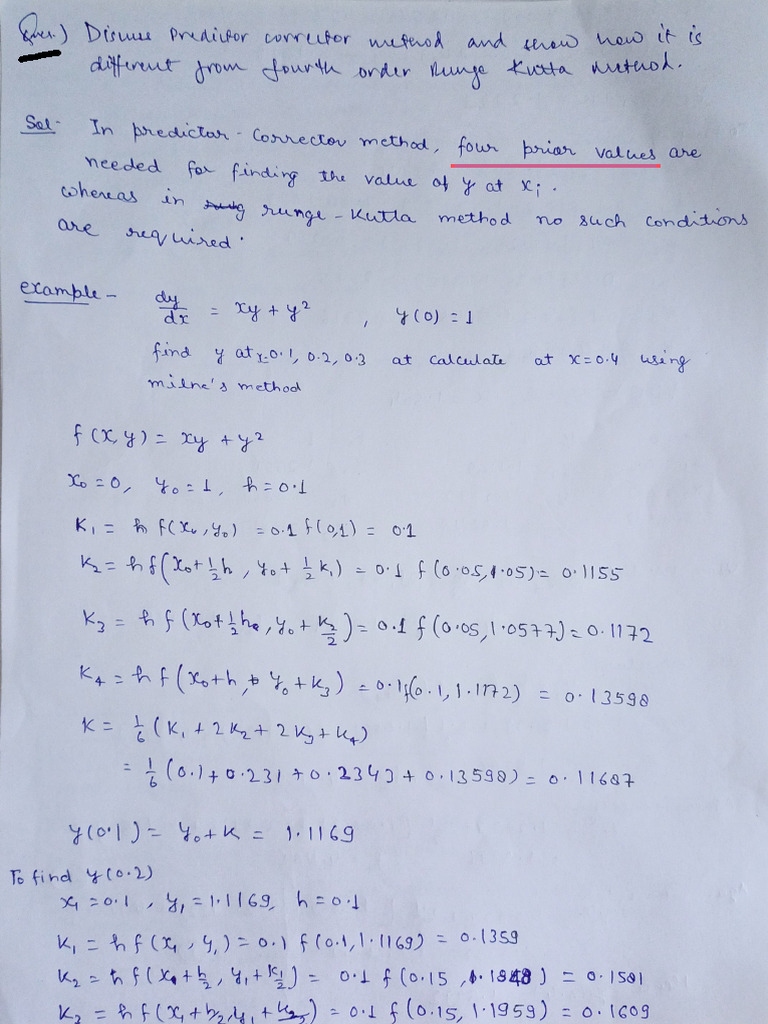 Ques.) Discuss Predictor corrector method and show how it is
different from fourth order Runge Kutta method.
Sol- In predictor-Corrector method, four prior values are
needed for finding the value of y at xi.
whereas in runge-Kutta method no such conditions
are required.
example- dy/dx = xy + y² , y(0) = 1
find y at x=0.1, 0.2, 0.3 at calculate at x=0.4 using
milne's method
f(x,y) = xy + y²
x₀ = 0, y₀ = 1, h = 0.1
K₁ = h f(x₀, y₀) = 0.1 f(0,1) = 0.1
K₂ = h f(x₀+½h, y₀+½K₁) = 0.1 f(0.05,1.05) = 0.1155
K₃ = h f(x₀+½h, y₀+K₂/2) = 0.1 f(0.05,1.0577) = 0.1172
K₄ = h f(x₀+h, y₀+K₃) = 0.1f(0.1,1.1172) = 0.13598
K = 1/6 (K₁ + 2K₂ + 2K₃ + K₄)
= 1/6 (0.1 + 0.231 + 0.2343 + 0.13598) = 0.11687
y(0.1) = y₀+K = 1.1169
To find y(0.2)
x₁ = 0.1, y₁ = 1.1169, h = 0.1
K₁ = h f(x₁, y₁) = 0.1 f(0.1,1.1169) = 0.1359
K₂ = h f(x₁+h/2, y₁+K₁/2) = 0.1 f(0.15, ) = 0.1581
K₃ = h f(x₁+h/2, y₁+K₂/2) = 0.1 f(0.15, 1.1959) = 0.1609